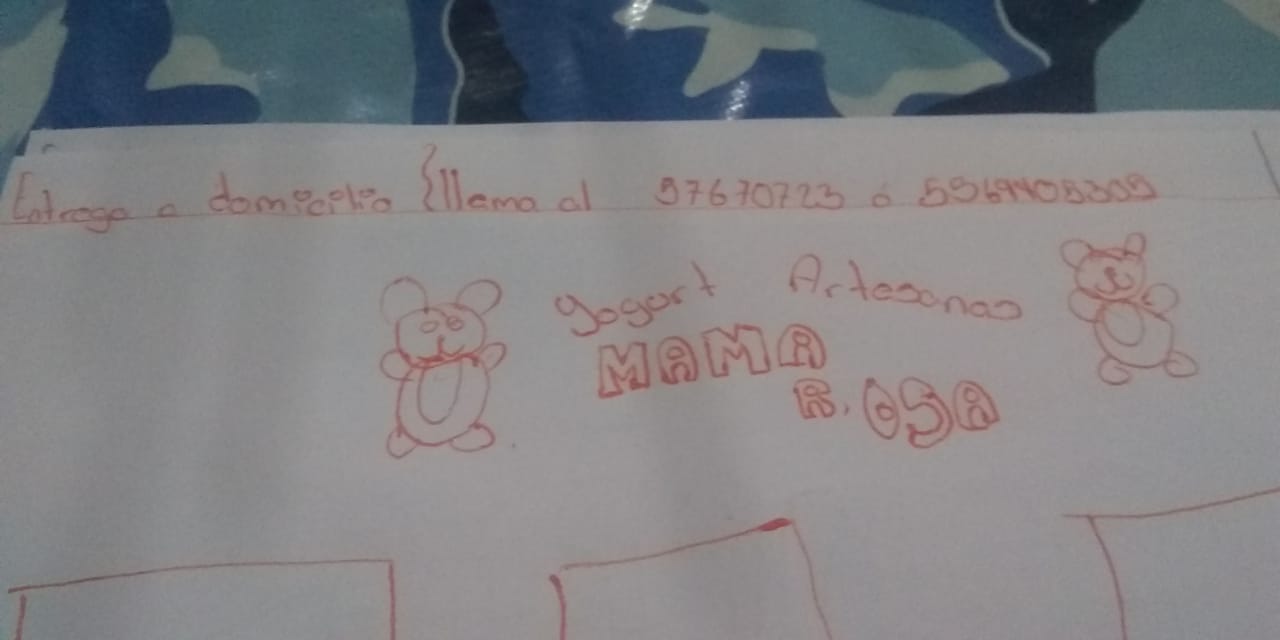 Entrega a domicilio {llama al 57670723 ó 5569405309
Yogurt Artesanas
MAMA
R. OSA